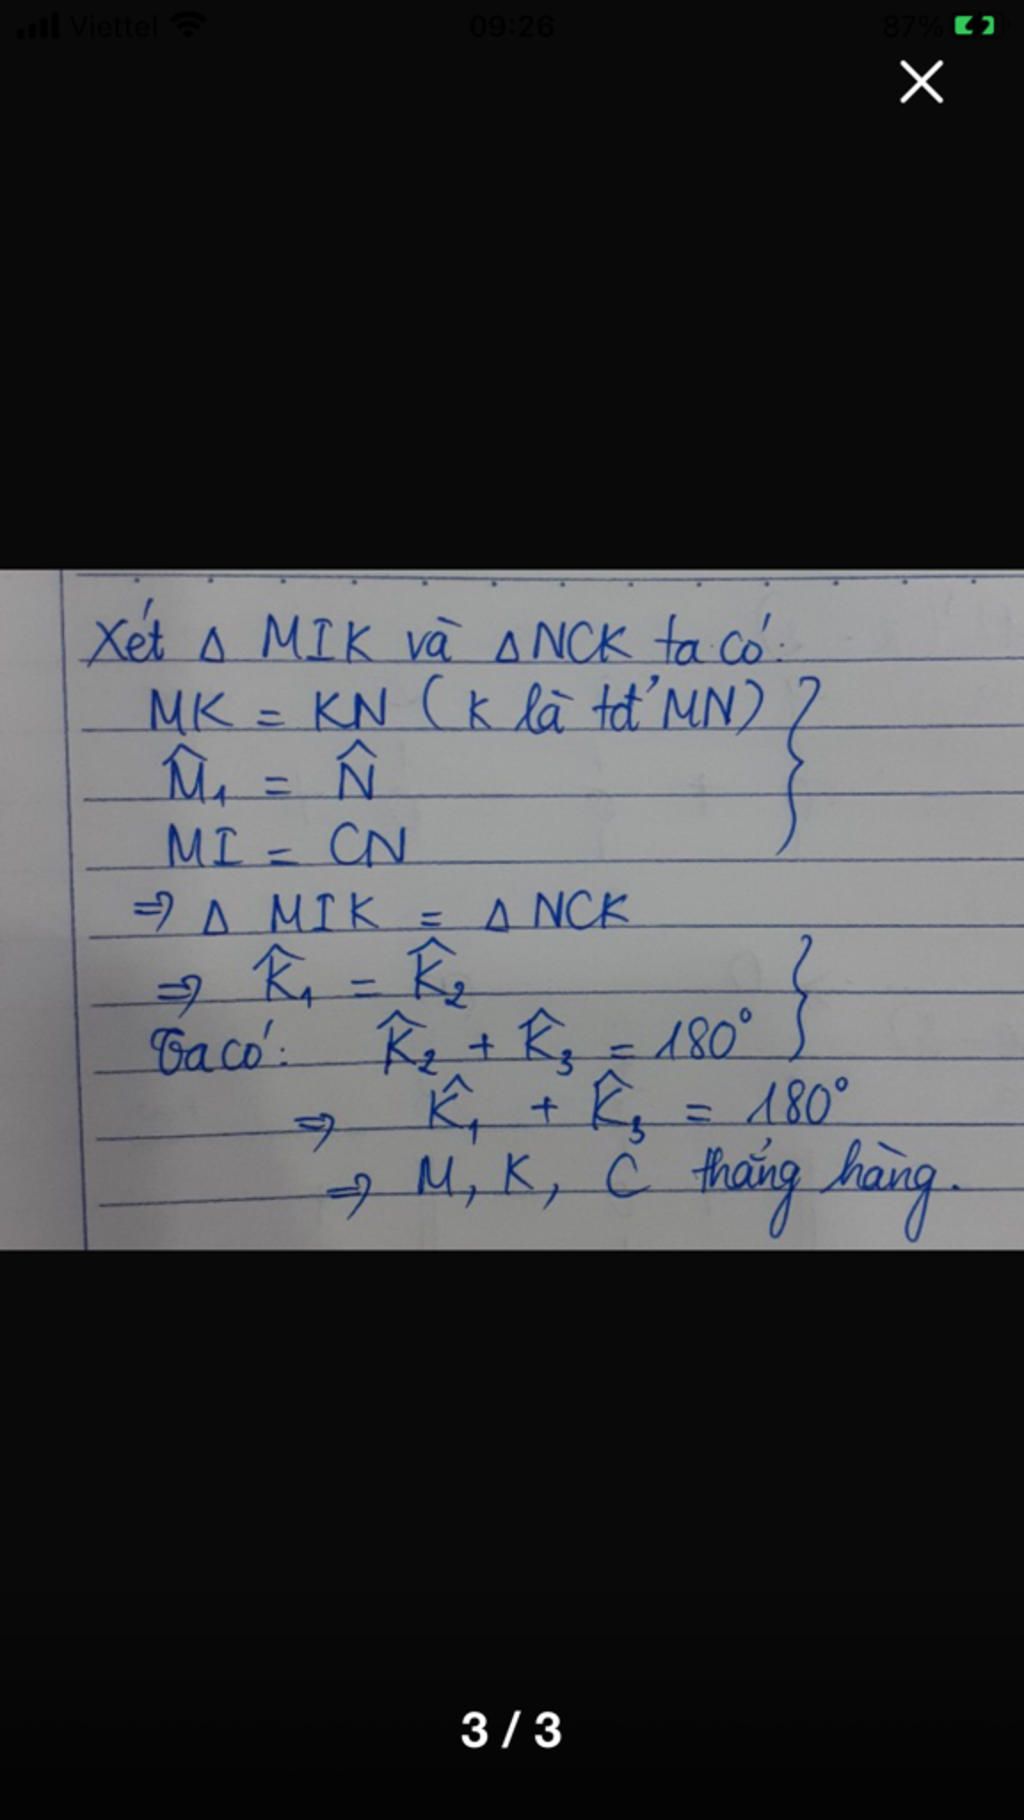 Viettel 09:26 87%
Xét Δ MIK và Δ NCK ta có:
MK = KN (K là tđ' MN)
M̂₁ = N̂
MI = CN
⇒ Δ MIK = Δ NCK
⇒ K̂₁ = K̂₂
Ta có: K̂₂ + K̂₃ = 180°
⇒ K̂₁ + K̂₃ = 180°
⇒ M, K, C thẳng hàng.
3 / 3